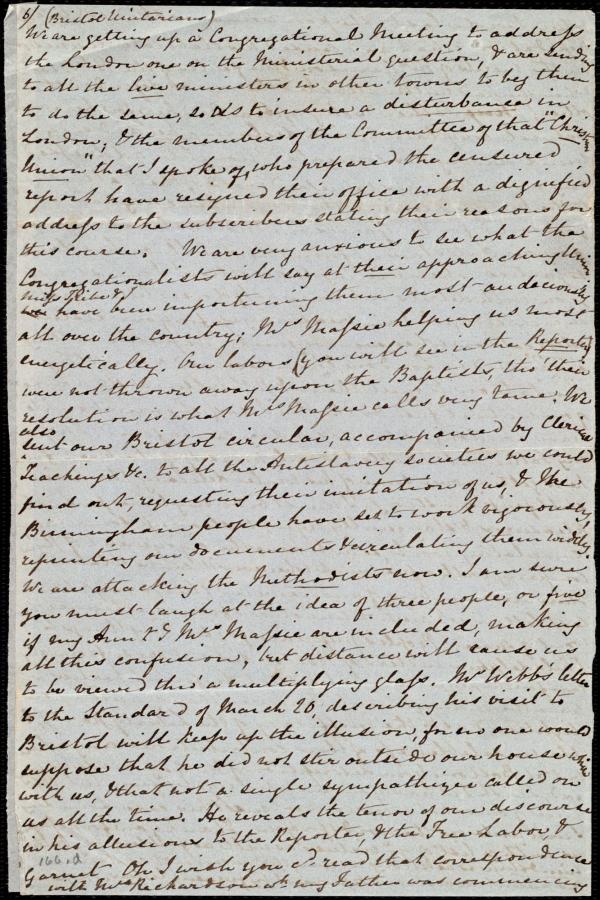 6/ (Bristol Unitarians)
We are getting up a Congregational Meeting to address
the London one on the Ministerial question, & are sending
to all the live ministers in other towns to beg them
to do the same, so as to insure a disturbance in
London; & the members of the Committee of that "Christn
Union" that I spoke of, who prepared the censured
report have resigned their office with a dignified
address to the subscribers stating their reasons for
this course. We are very anxious to see what the
Congregationalists will say at their approaching Union
Miss Hilt & I
we have been importuning them most audaciously
all over the country; Mrs Massie helping us most
energetically. Our labors (you will see in the Reporter)
were not thrown away upon the Baptists, tho' their
resolution is what Mrs Massie calls very tame. We
also
sent our Bristol circular, accompanied by Clerical
Teachings &c. to all the Antislavery societies we could
find out, requesting their imitation of us, & the
Birmingham people have set to work vigorously,
reprinting our documents & circulating them widely.
We are attacking the Methodists now. I am sure
you must laugh at the idea of three people, or five
if my Aunt & Mrs Massie are included, making
all this confusion, but distance will cause us
to be viewed thro' a multiplying glass. Mr Webb's letter
to the Standard of March 20, describing his visit to
Bristol will keep up the illusion, for no one would
suppose that he did not stir outside our house while
with us, & that not a single sympathizer called on
us all the time. He reveals the tenor of our discourse
in his allusions to the Reporter, & the Free Labor, &
Garnet. Oh I wish you cd. read that correspondence
with Mrs Richardson wh. my Father was commencing